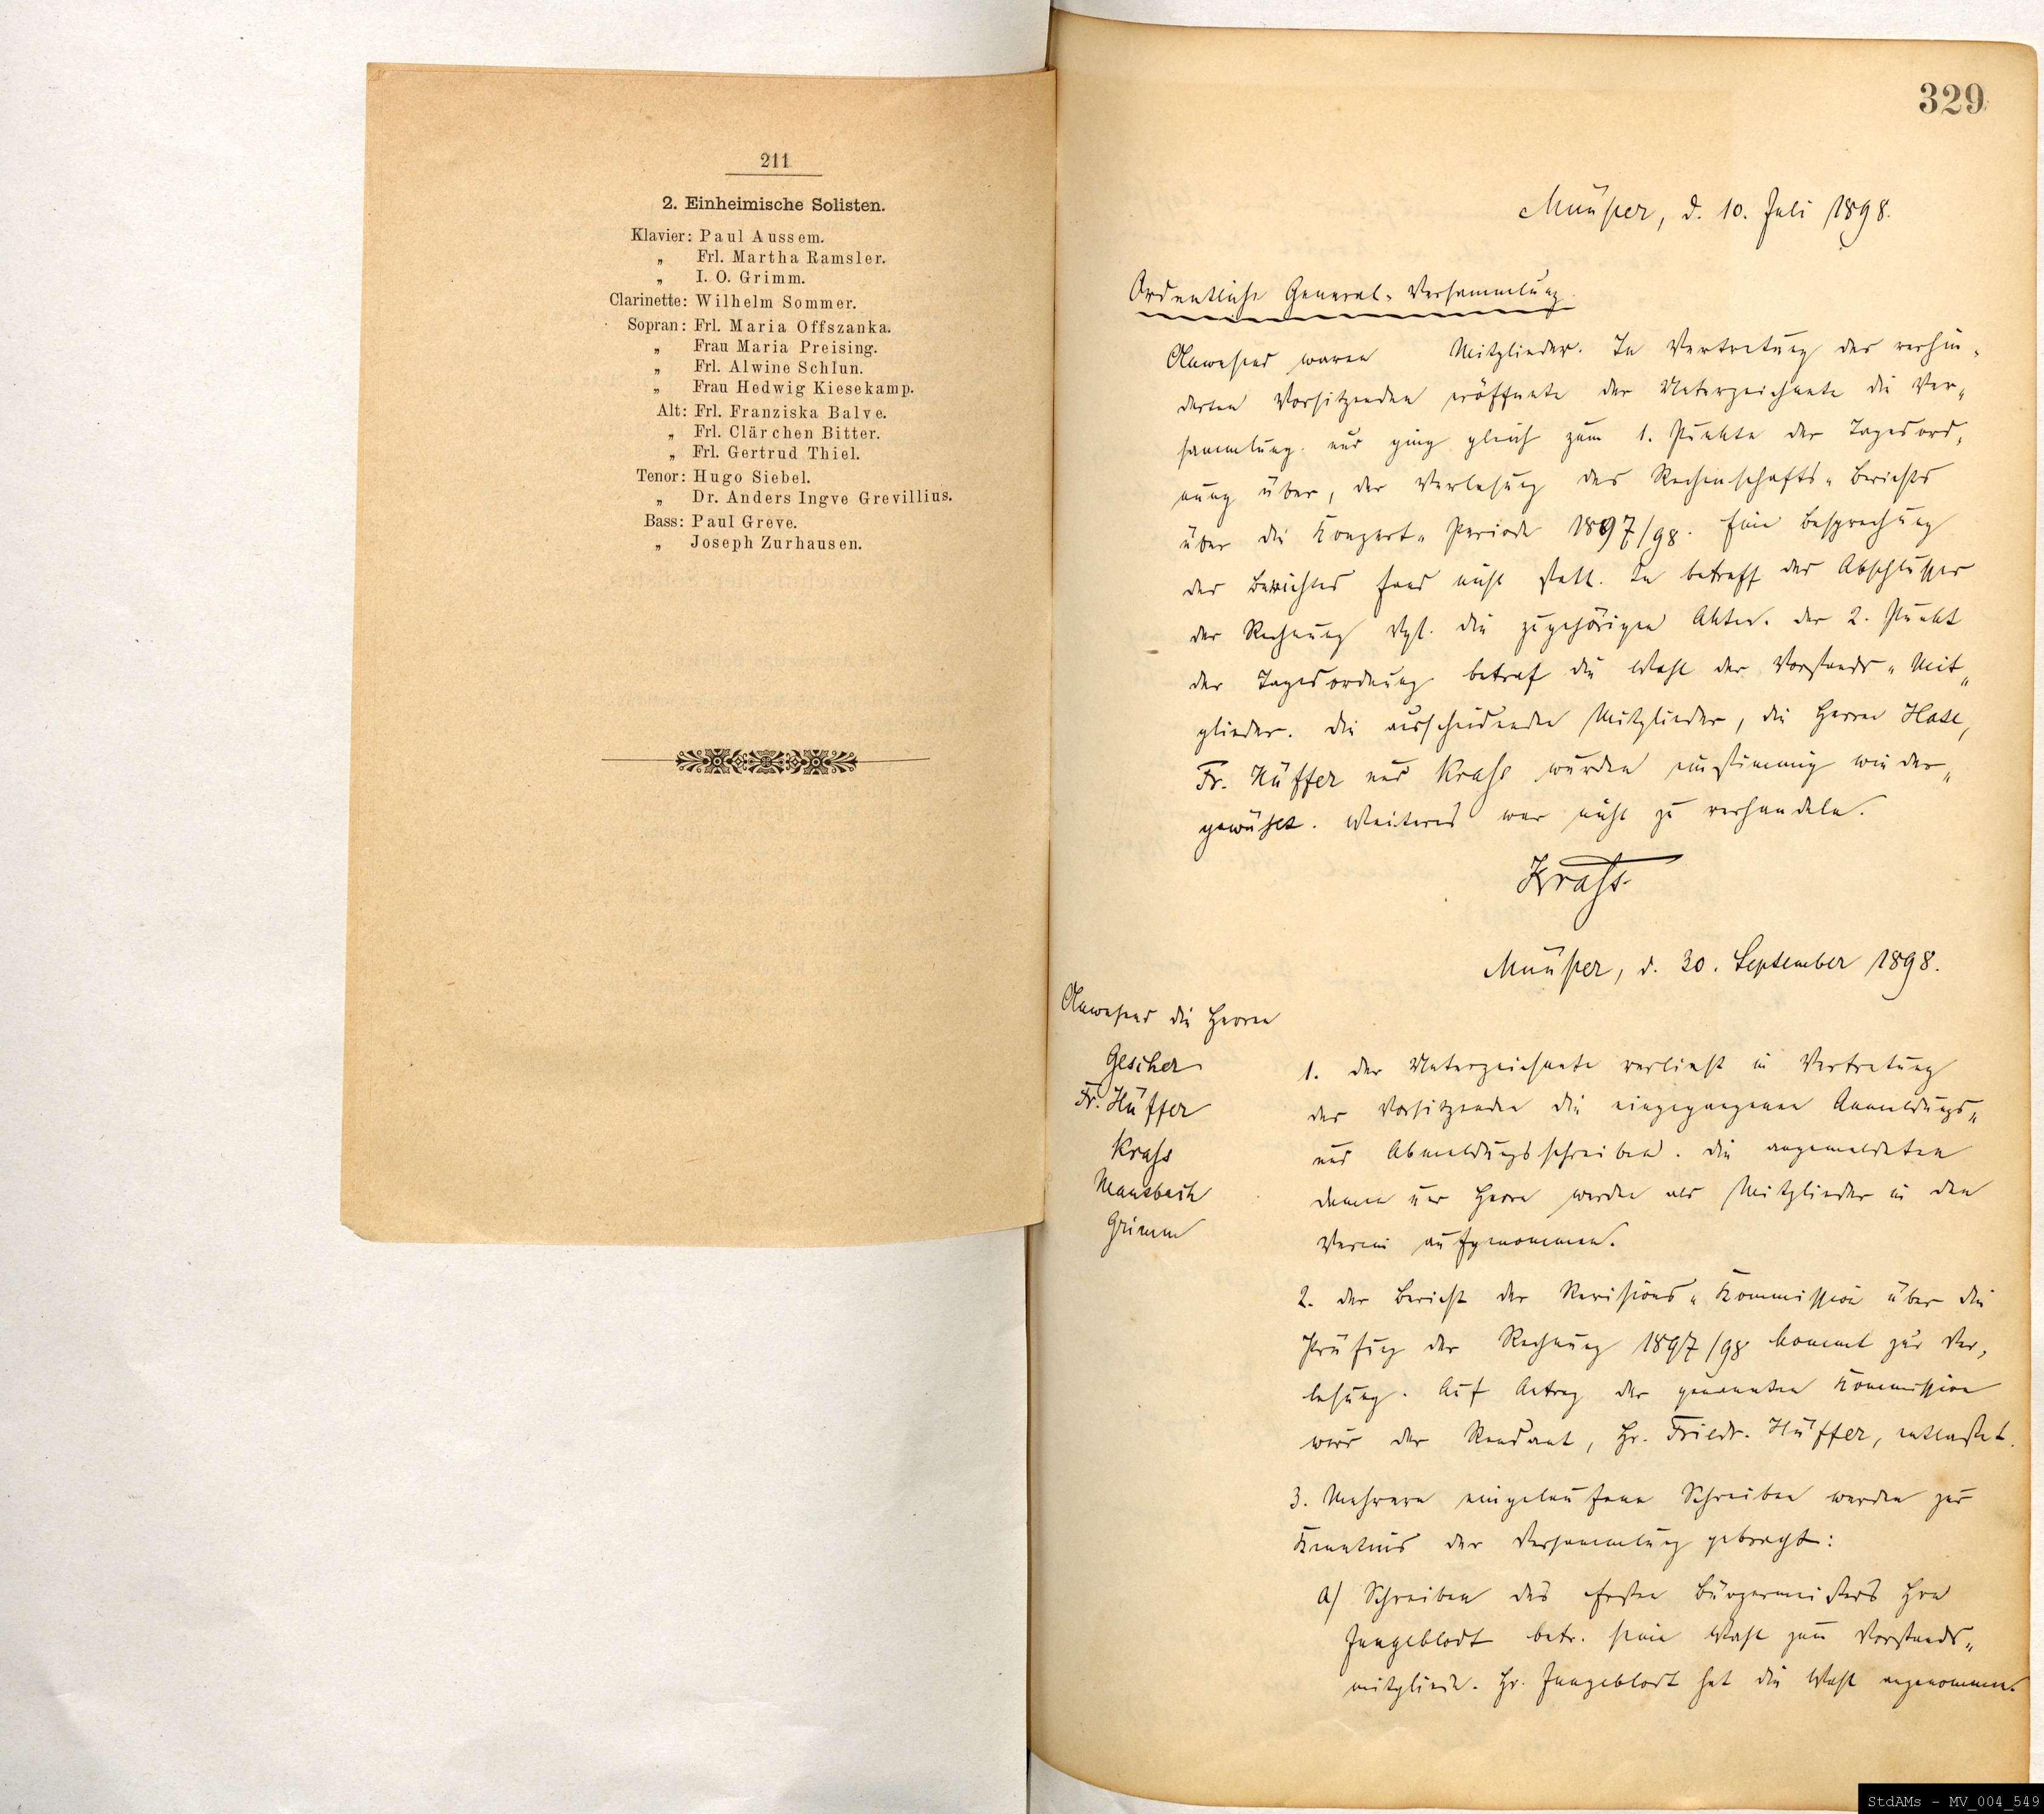 211
2. Einheimische Solisten.
Klavier: Paul Aussem.
„ Frl. Martha Ramsler.
„ I. O. Grimm.
Clarinette: Wilhelm Sommer.
Sopran: Frl. Maria Offszanka.
„ Frau Maria Preising.
„ Frl. Alwine Schlun.
„ Frau Hedwig Kiesekamp.
Alt: Frl. Franziska Balve.
„ Frl. Clärchen Bitter.
„ Frl. Gertrud Thiel.
Tenor: Hugo Siebel.
„ Dr. Anders Ingve Grevillius.
Bass: Paul Greve.
„ Joseph Zurhausen.
329
Münster, d. 10. Juli 1898.
Ordentliche General-Versammlung.
Anwesend waren Mitglieder. In Vertretung des verhin-
derten Vorsitzenden eröffnete der Unterzeichnete die Ver-
sammlung und ging gleich zum 1. Punkte der Tagesord-
nung über, der Verlesung des Rechenschafts-Berichts
über die Konzert-Periode 1897/98. Eine Besprechung
des Berichtes fand nicht statt. In betreff des Abschlusses
der Rechnung vgl. die zugehörigen Akten. Der 2. Punkt
der Tagesordnung betraf die Wahl der Vorstands-Mit-
glieder. Die ausscheidenden Mitglieder, die Herren Hase,
Fr. Hüffer und Krass wurden einstimmig wieder-
gewählt. Weiteres war nicht zu verhandeln.
Krass.
Münster, d. 30. September 1898.
Anwesend die Herren
Gescher
Fr. Hüffer
Krass
Mausbach
Grimm
1. Der Unterzeichnete verliest in Vertretung
des Vorsitzenden die eingegangenen Anmeldungs-
und Abmeldungsschreiben. Die angemeldeten
Damen und Herren werden als Mitglieder in den
Verein aufgenommen.
2. Der Bericht der Revisions-Kommission über die
Prüfung der Rechnung 1897/98 kommt zur Ver-
lesung. Auf Antrag der genannten Kommission
wird der Rendant, Hr. Friedr. Hüffer, entlastet.
3. Mehrere eingelaufene Schreiben werden zur
Kenntnis der Versammlung gebracht:
a) Schreiben des Ersten Bürgermeisters Hrn
Jungeblodt betr. seine Wahl zum Vorstands-
mitgliede. Hr. Jungeblodt hat die Wahl angenommen.
StdAMs - MV 004_549